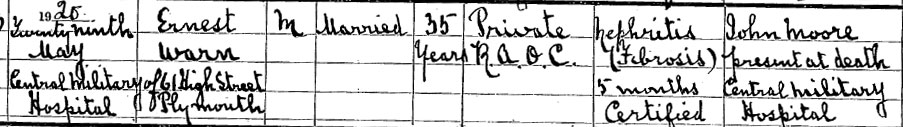 1920
Twenty ninth
May
Central Military
Hospital
Ernest
Warn
of 61 High Street
Plymouth
M
Married
35
Years
Private
R.A.O.C.
Nephritis
(Fibrosis)
5 months
Certified
John Moore
present at death
Central Military
Hospital